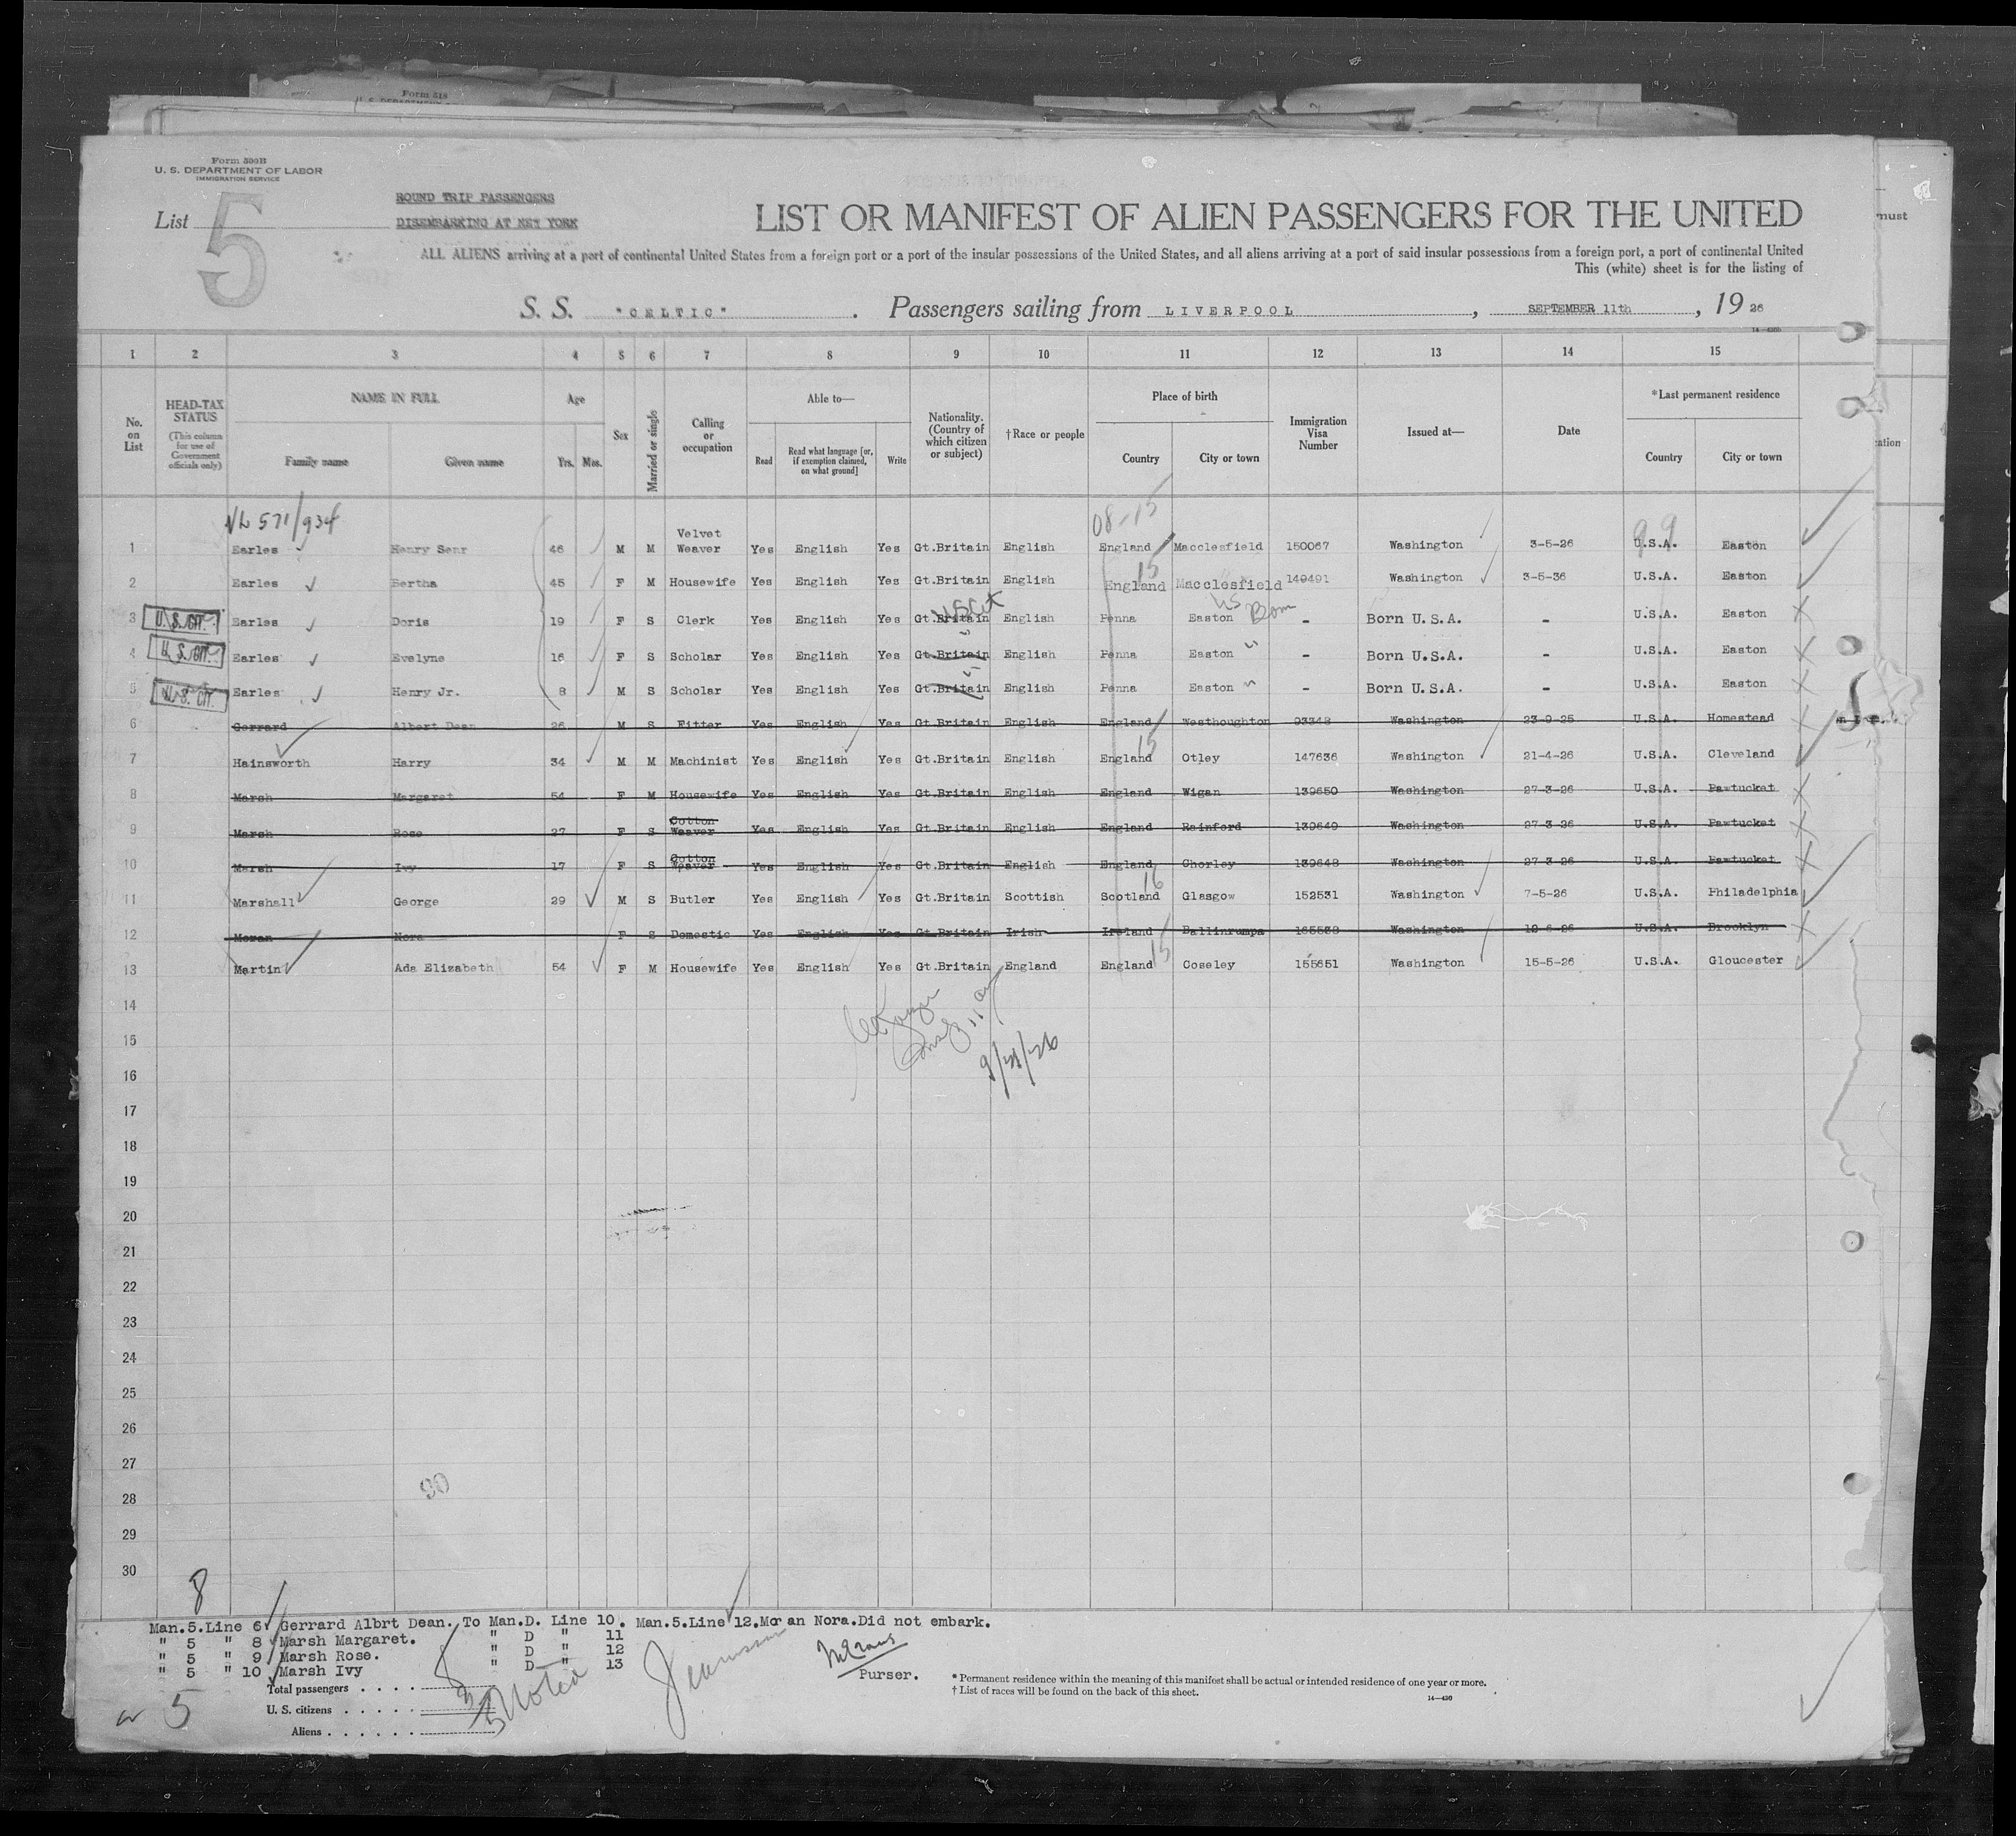 Form 518
Form 500B
U. S. DEPARTMENT OF LABOR
IMMIGRATION SERVICE
List 5
ROUND TRIP PASSENGERS
DISEMBARKING AT NEW YORK
LIST OR MANIFEST OF ALIEN PASSENGERS FOR THE UNITED
ALL ALIENS arriving at a port of continental United States from a foreign port or a port of the insular possessions of the United States, and all aliens arriving at a port of said insular possessions from a foreign port, a port of continental United
This (white) sheet is for the listing of
must
S. S. "CELTIC". Passengers sailing from LIVERPOOL, SEPTEMBER 11th, 19 26
1 2 3 4 5 6 7 8 9 10 11 12 13 14 15
No. on List
HEAD-TAX STATUS (This column for use of Government officials only)
NAME IN FULL
Family name Given name
Age
Yrs. Mos.
Sex
Married or single
Calling or occupation
Able to—
Read
Read what language [or, if exemption claimed, on what ground]
Write
Nationality. (Country of which citizen or subject)
†Race or people
Place of birth
Country City or town
Immigration Visa Number
Issued at—
Date
*Last permanent residence
Country City or town
NL 571/934 08-15 99
1 Earles Henry Senr 46 M M Velvet Weaver Yes English Yes Gt.Britain English England Macclesfield 150067 Washington 3-5-26 U.S.A. Easton
2 Earles Bertha 45 F M Housewife Yes English Yes Gt.Britain English England 15 Macclesfield 149491 Washington 3-5-36 U.S.A. Easton
3 U.S. CIT. Earles Doris 19 F S Clerk Yes English Yes Gt.Britain US Cit English Penna Easton US Born - Born U.S.A. - U.S.A. Easton
4 U.S. CIT. Earles Evelyne 16 F S Scholar Yes English Yes Gt.Britain English Penna Easton " - Born U.S.A. - U.S.A. Easton
5 U.S. CIT. Earles Henry Jr. 8 M S Scholar Yes English Yes Gt.Britain English Penna Easton " - Born U.S.A. - U.S.A. Easton
6 Gerrard Albert Dean 26 M S Fitter Yes English Yes Gt.Britain English England Westhoughton 93348 Washington 23-9-25 U.S.A. Homestead
7 Hainsworth Harry 34 M M Machinist Yes English Yes Gt.Britain English England 15 Otley 147636 Washington 21-4-26 U.S.A. Cleveland
8 Marsh Margaret 54 F M Housewife Yes English Yes Gt.Britain English England Wigan 139650 Washington 27-3-26 U.S.A. Pawtucket
9 Marsh Rose 27 F S Cotton Weaver Yes English Yes Gt.Britain English England Rainford 139649 Washington 27-3-26 U.S.A. Pawtucket
10 Marsh Ivy 17 F S Cotton Weaver Yes English Yes Gt.Britain English England Chorley 139648 Washington 27-3-26 U.S.A. Pawtucket
11 Marshall George 29 M S Butler Yes English Yes Gt.Britain Scottish Scotland 16 Glasgow 152531 Washington 7-5-26 U.S.A. Philadelphia
12 Moran Nora F S Domestic Yes English Yes Gt.Britain Irish Ireland Ballinrumpa 165538 Washington 12-6-26 U.S.A. Brooklyn
13 Martin Ada Elizabeth 54 F M Housewife Yes English Yes Gt.Britain England England 15 Coseley 155651 Washington 15-5-26 U.S.A. Gloucester
14
15
9/21/26
16
17
18
19
20
21
22
23
24
25
26
27
28 90
29
30
8
Man.5.Line 6 Gerrard Albrt Dean. To Man.D. Line 10. Man.5.Line 12.Moran Nora.Did not embark.
" 5 " 8 Marsh Margaret. " D " 11
" 5 " 9 Marsh Rose. " D " 12
" 5 " 10 Marsh Ivy " D " 13
Purser.
Total passengers . . . .
U. S. citizens . . . . . 3
Aliens . . . . . . 5
Noted
5
* Permanent residence within the meaning of this manifest shall be actual or intended residence of one year or more.
† List of races will be found on the back of this sheet.
14—430